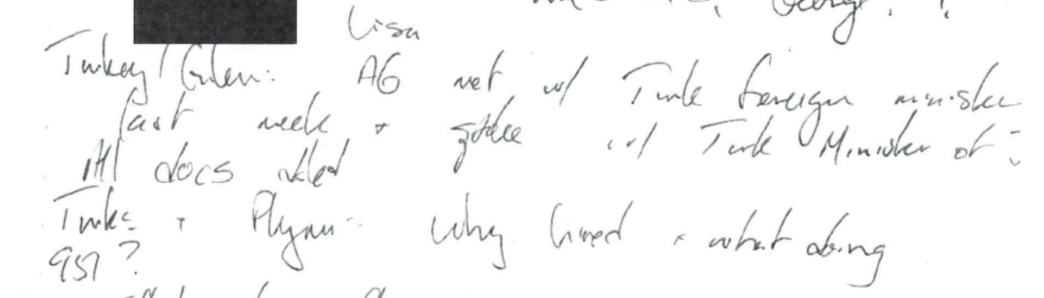 George. ?
Lisa
Turkey/Gulen: AG met w/ Turk foreign minister
last week + spoke w/ Turk Minister of J.
All docs
Turks + Flynn: why hired + what doing
951?